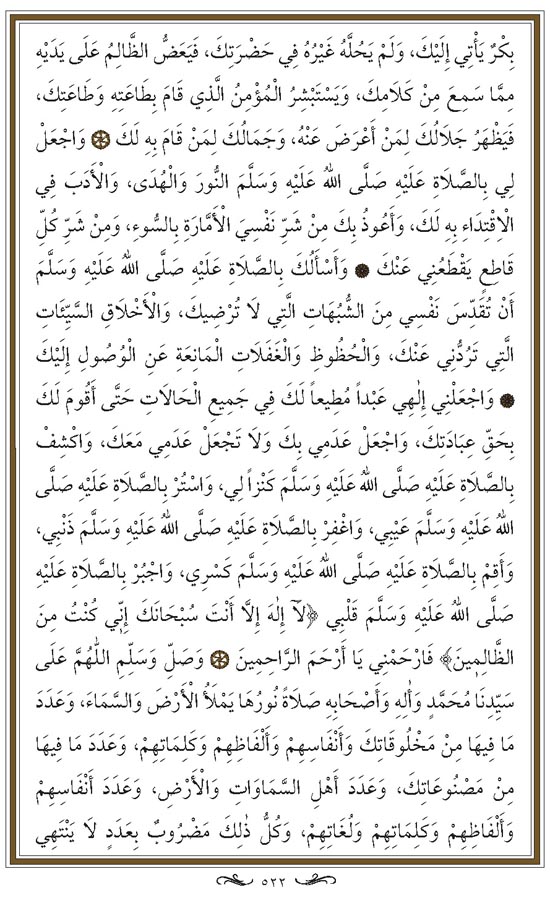 بِكْرٌ يَأْتِي إِلَيْكَ، وَلَمْ يَحُلَّهُ غَيْرُهُ فِي حَضْرَتِكَ، فَيَعَضُّ الظَّالِمُ عَلَى يَدَيْهِ
مِمَّا سَمِعَ مِنْ كَلَامِكَ، وَيَسْتَبْشِرُ الْمُؤْمِنُ الَّذِي قَامَ بِطَاعَتِهِ وَطَاعَتِكَ،
فَيَظْهَرُ جَلَالُكَ لِمَنْ أَعْرَضَ عَنْهُ، وَجَمَالُكَ لِمَنْ قَامَ بِهِ لَكَ ۞ وَاجْعَلْ
لِي بِالصَّلَاةِ عَلَيْهِ صَلَّى اللهُ عَلَيْهِ وَسَلَّمَ النُّورَ وَالْهُدَى، وَالْأَدَبَ فِي
الْاِقْتِدَاءِ بِهِ لَكَ، وَأَعُوذُ بِكَ مِنْ شَرِّ نَفْسِيَ الْأَمَّارَةِ بِالسُّوءِ، وَمِنْ شَرِّ كُلِّ
قَاطِعٍ يَقْطَعُنِي عَنْكَ ۞ وَأَسْأَلُكَ بِالصَّلَاةِ عَلَيْهِ صَلَّى اللهُ عَلَيْهِ وَسَلَّمَ
أَنْ تُقَدِّسَ نَفْسِي مِنَ الشُّبُهَاتِ الَّتِي لَا تُرْضِيكَ، وَالْأَخْلَاقِ السَّيِّئَاتِ
الَّتِي تَرُدُّنِي عَنْكَ، وَالْحُظُوظِ وَالْغَفَلَاتِ الْمَانِعَةِ عَنِ الْوُصُولِ إِلَيْكَ
۞ وَاجْعَلْنِي إِلٰهِي عَبْداً مُطِيعاً لَكَ فِي جَمِيعِ الْحَالَاتِ حَتَّى أَقُومَ لَكَ
بِحَقِّ عِبَادَتِكَ، وَاجْعَلْ عَدَمِي بِكَ وَلَا تَجْعَلْ عَدَمِي مَعَكَ، وَاكْشِفْ
بِالصَّلَاةِ عَلَيْهِ صَلَّى اللهُ عَلَيْهِ وَسَلَّمَ كَنْزاً لِي، وَاسْتُرْ بِالصَّلَاةِ عَلَيْهِ صَلَّى
اللهُ عَلَيْهِ وَسَلَّمَ عَيْبِي، وَاغْفِرْ بِالصَّلَاةِ عَلَيْهِ صَلَّى اللهُ عَلَيْهِ وَسَلَّمَ ذَنْبِي،
وَأَقِمْ بِالصَّلَاةِ عَلَيْهِ صَلَّى اللهُ عَلَيْهِ وَسَلَّمَ كَسْرِي، وَاجْبُرْ بِالصَّلَاةِ عَلَيْهِ
صَلَّى اللهُ عَلَيْهِ وَسَلَّمَ قَلْبِي ﴿لَآ إِلٰهَ إِلَّا أَنْتَ سُبْحَانَكَ إِنِّي كُنْتُ مِنَ
الظَّالِمِينَ﴾ فَارْحَمْنِي يَا أَرْحَمَ الرَّاحِمِينَ ۞ وَصَلِّ وَسَلِّمِ اللّٰهُمَّ عَلَى
سَيِّدِنَا مُحَمَّدٍ وَاٰلِهِ وَأَصْحَابِهِ صَلَاةً نُورُهَا يَمْلَأُ الْأَرْضَ وَالسَّمَاءَ، وَعَدَدَ
مَا فِيهَا مِنْ مَخْلُوقَاتِكَ وَأَنْفَاسِهِمْ وَأَلْفَاظِهِمْ وَكَلِمَاتِهِمْ، وَعَدَدَ مَا فِيهَا
مِنْ مَصْنُوعَاتِكَ، وَعَدَدَ أَهْلِ السَّمَاوَاتِ وَالْأَرْضِ، وَعَدَدَ أَنْفَاسِهِمْ
وَأَلْفَاظِهِمْ وَكَلِمَاتِهِمْ وَلُغَاتِهِمْ، وَكُلُّ ذٰلِكَ مَضْرُوبٌ بِعَدَدٍ لَا يَنْتَهِي
٥٢٢